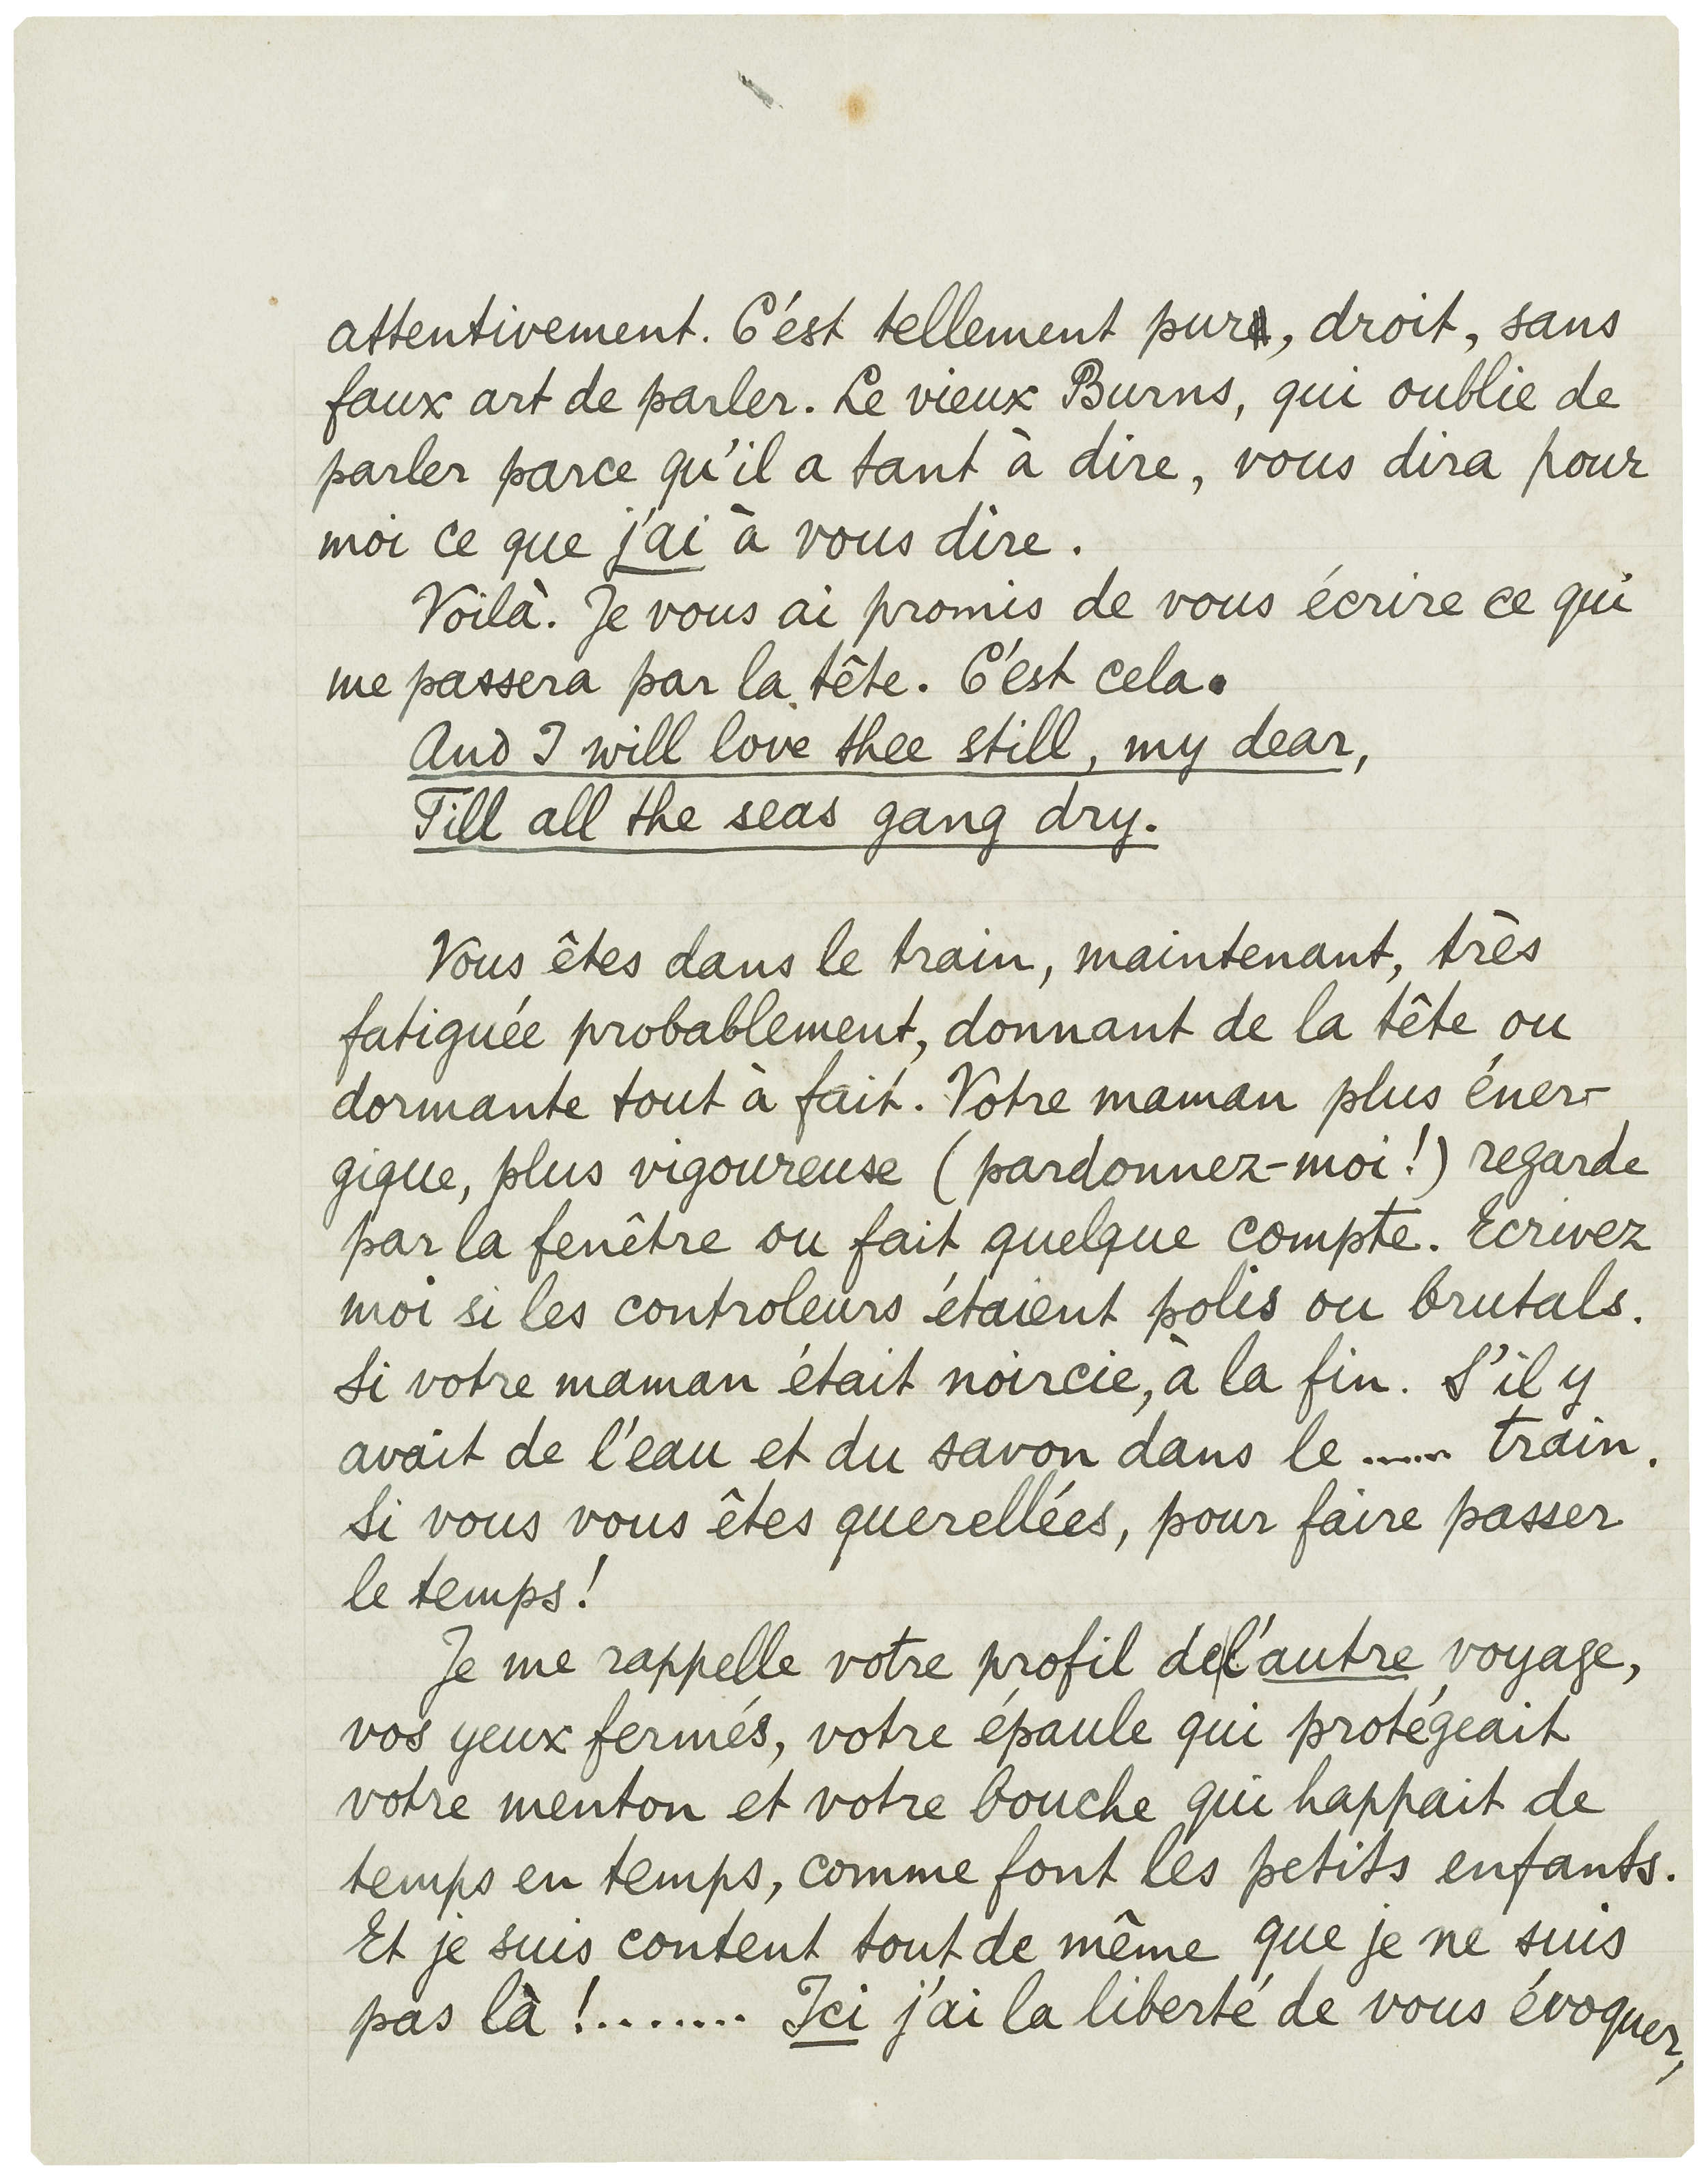 attentivement. C'est tellement pur, droit, sans
faux art de parler. Le vieux Burns, qui oublie de
parler parce qu'il a tant à dire, vous dira pour
moi ce que j'ai à vous dire.
Voilà. Je vous ai promis de vous écrire ce qui
me passera par la tête. C'est cela.
And I will love thee still, my dear,
Till all the seas gang dry.
Vous êtes dans le train, maintenant, très
fatiguée probablement, donnant de la tête ou
dormante tout à fait. Votre maman plus éner-
gique, plus vigoureuse (pardonnez-moi!) regarde
par la fenêtre ou fait quelque compte. Ecrivez
moi si les controleurs étaient polis ou brutals.
Si votre maman était noircie, à la fin. S'il y
avait de l'eau et du savon dans le ...... train.
Si vous vous êtes querellées, pour faire passer
le temps!
Je me rappelle votre profil de l'autre voyage,
vos yeux fermés, votre épaule qui protégeait
votre menton et votre bouche qui happait de
temps en temps, comme font les petits enfants.
Et je suis content tout de même que je ne suis
pas là !........ Ici j'ai la liberté de vous évoquer,